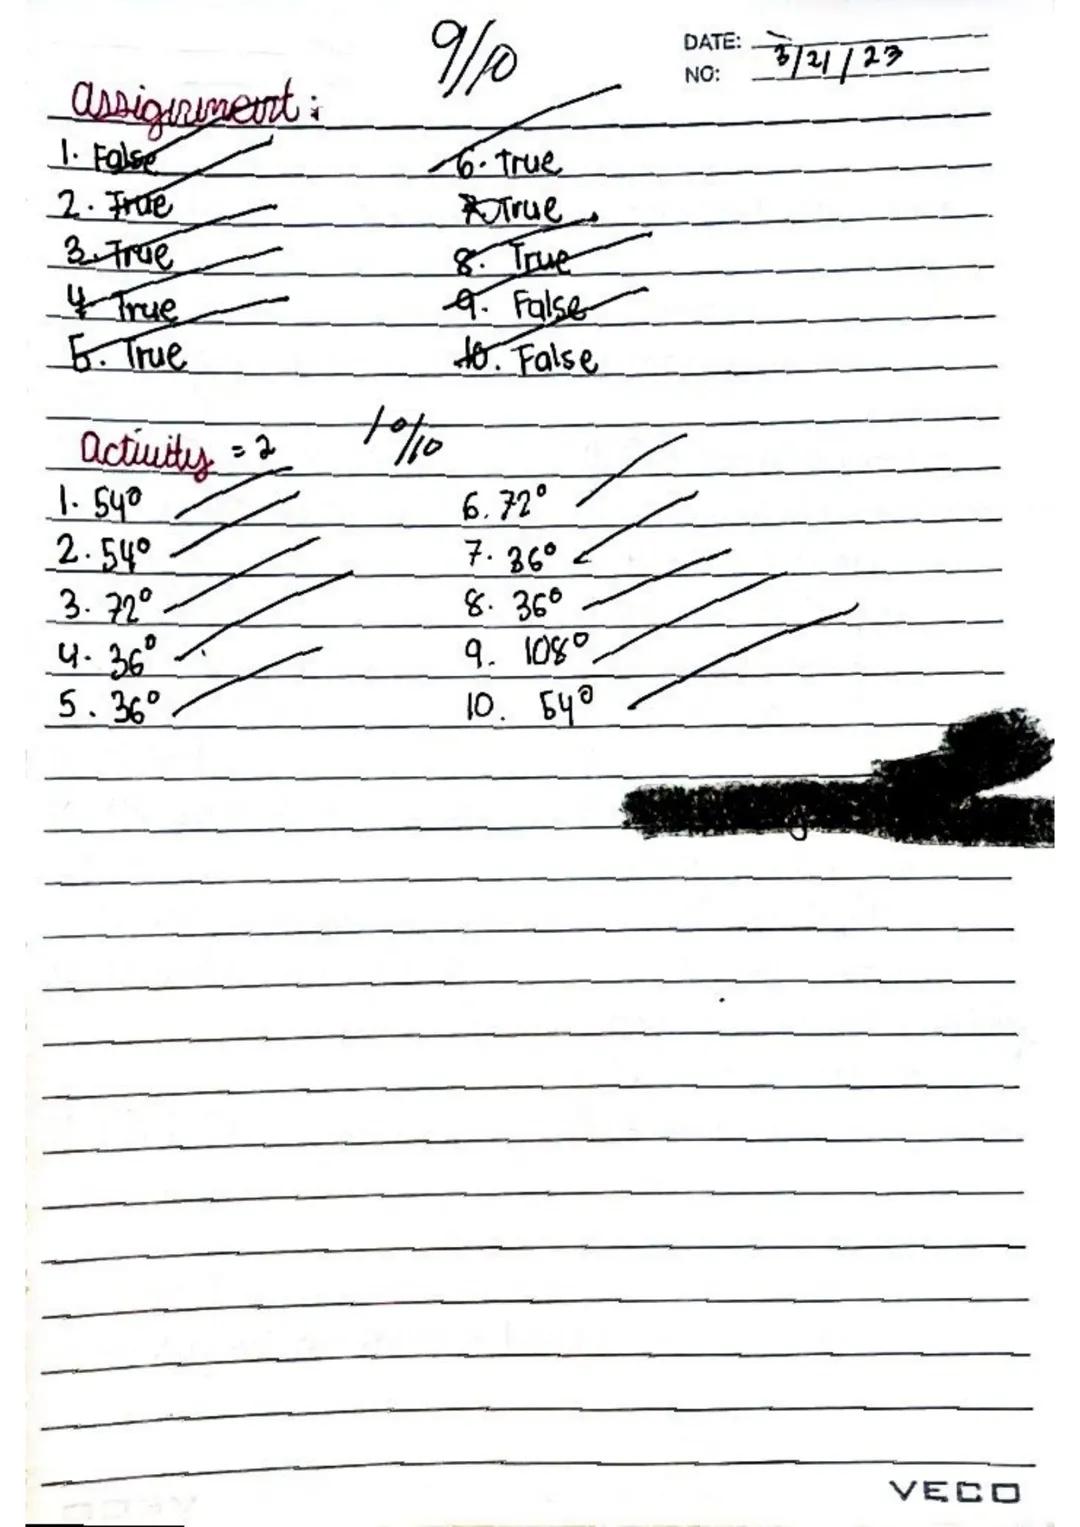 9/10
DATE: 3/21/23
NO:
Assignment:
1. False
2. True
3. True
4 True
5. True
6. True
7 True
8. True
9. False
10. False
Activity = 2
10/10
1. 54°
2. 54°
3. 72°
4. 36°
5. 36°
6. 72°
7. 36°
8. 36°
9. 108°
10. 54°
VECO